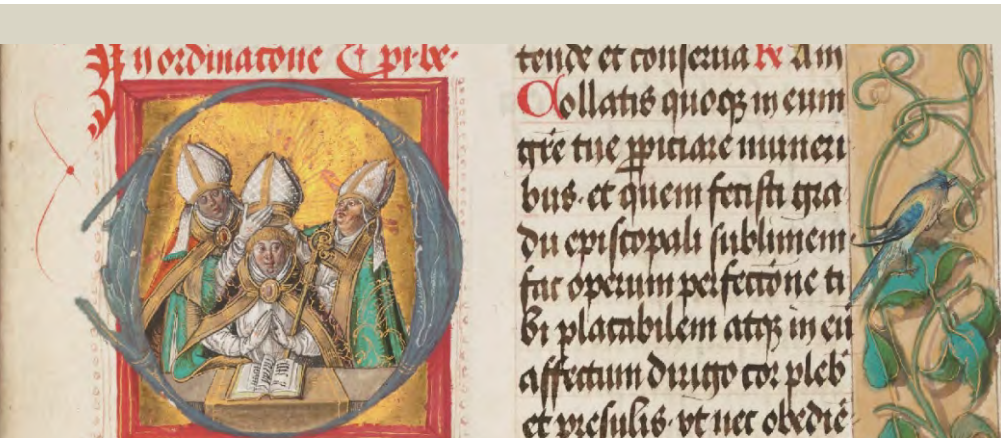 In ordinacone Epi be-
tende et conserua Re Am
Collatis quoqz in eum
gr̄e tue ꝓpiciare muneri
bus. et quem fecisti gra
du episcopali sublimem
fac operum perfectione ti
bi placabilem atqz in eū
affectum dirigo cor pleb̄
et presulis. vt nec obediē